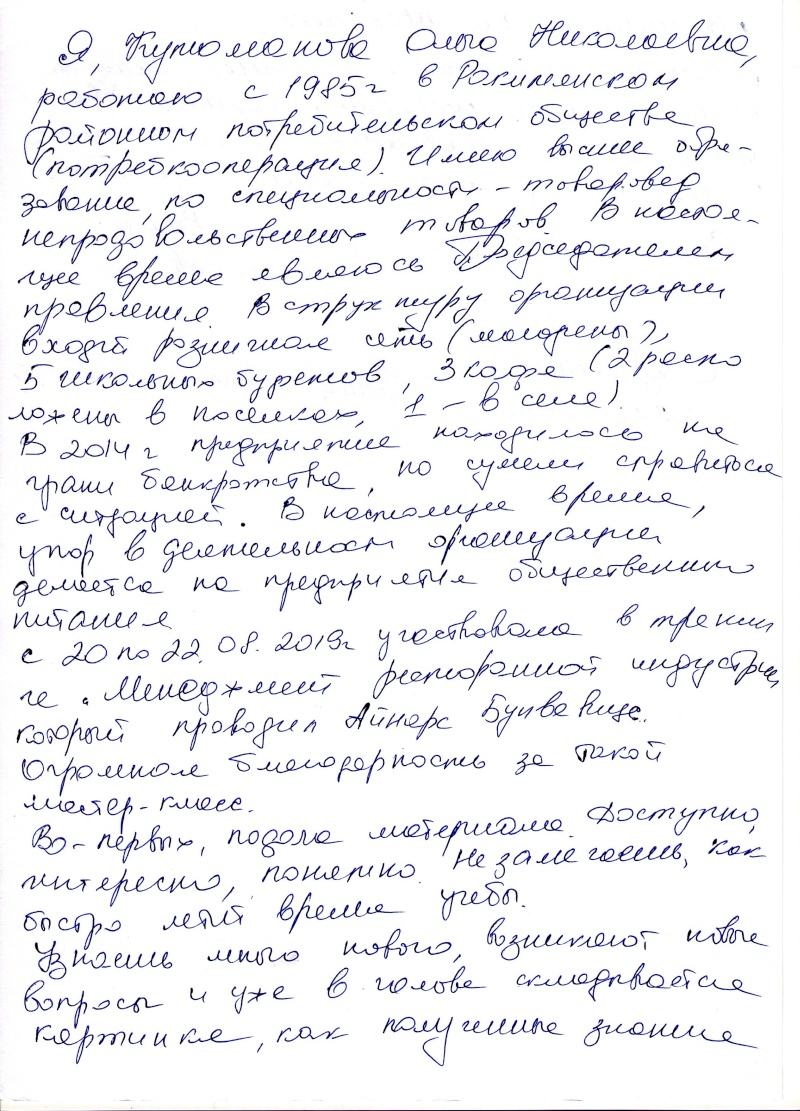 Я, Кутоманова Ольга Николаевна,
работаю с 1985г в Ракитянском
районном потребительском обществе
(потребкооперация). Имею высшее обра-
зование, по специальность - товаровед
непродовольственных товаров. В настоя-
щее время являюсь Председателем
правления. В структуру организации
входят розничная сеть (магазины),
5 школьных буфетов, 3 кафе (2 распо
ложены в поселках, 1 - в селе).
В 2014 г предприятие находилось на
грани банкротства, но сумели справиться
с ситуацией. В настоящее время,
упор в деятельности организации
делается на предприятия общественного
питания
с 20 по 22.08.2019г участвовала в тренин
ге "Менеджмент ресторанной индустрии
который проводил Айнарс
Огромная благодарность за такой
мастер-класс.
Во-первых, подача материала. Доступно,
интересно, понятно. Не замечаешь, как
быстро летит время учебы.
Узнаешь много нового, возникают новые
вопросы и уже в голове складывается
картинка, как полученные знания